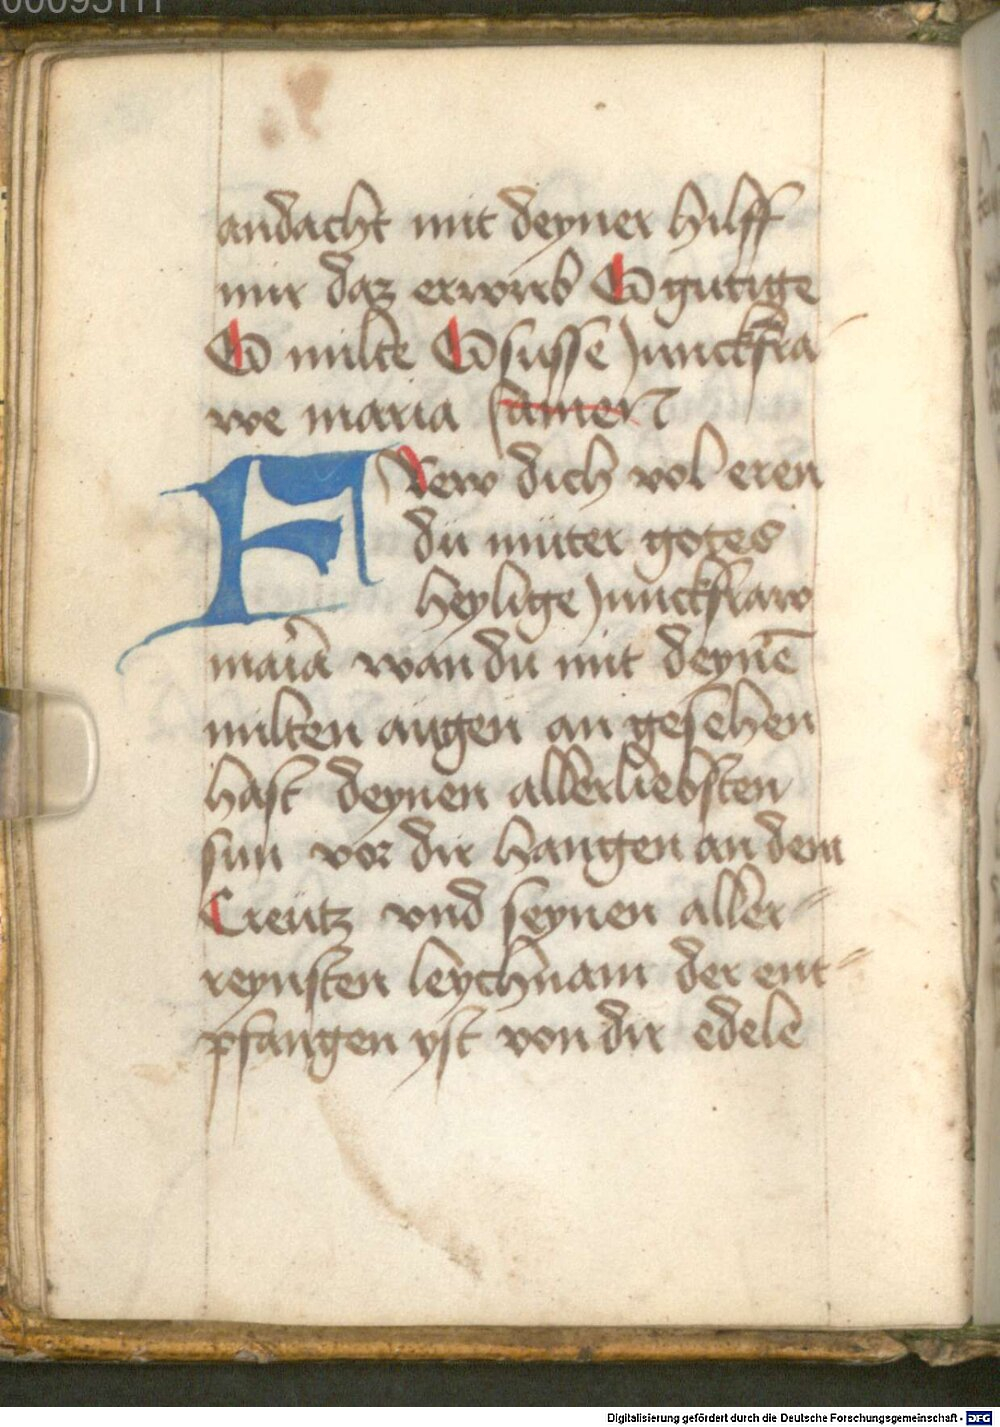 andacht mit deyner hilff
mir daz erwirb O gutige
O milte O susse junckfra
we maria amen
FRew dich vol eren
du muter gotes
heylige junckfraw
maria wan du mit deynē
milten augen an gesehen
hast deynen allerliebsten
sun vor dir hangen an dem
Creutz vnd seynen aller-
reynsten leychnam der ent-
pfangen yst von dir edele
Digitalisierung gefördert durch die Deutsche Forschungsgemeinschaft - DFG